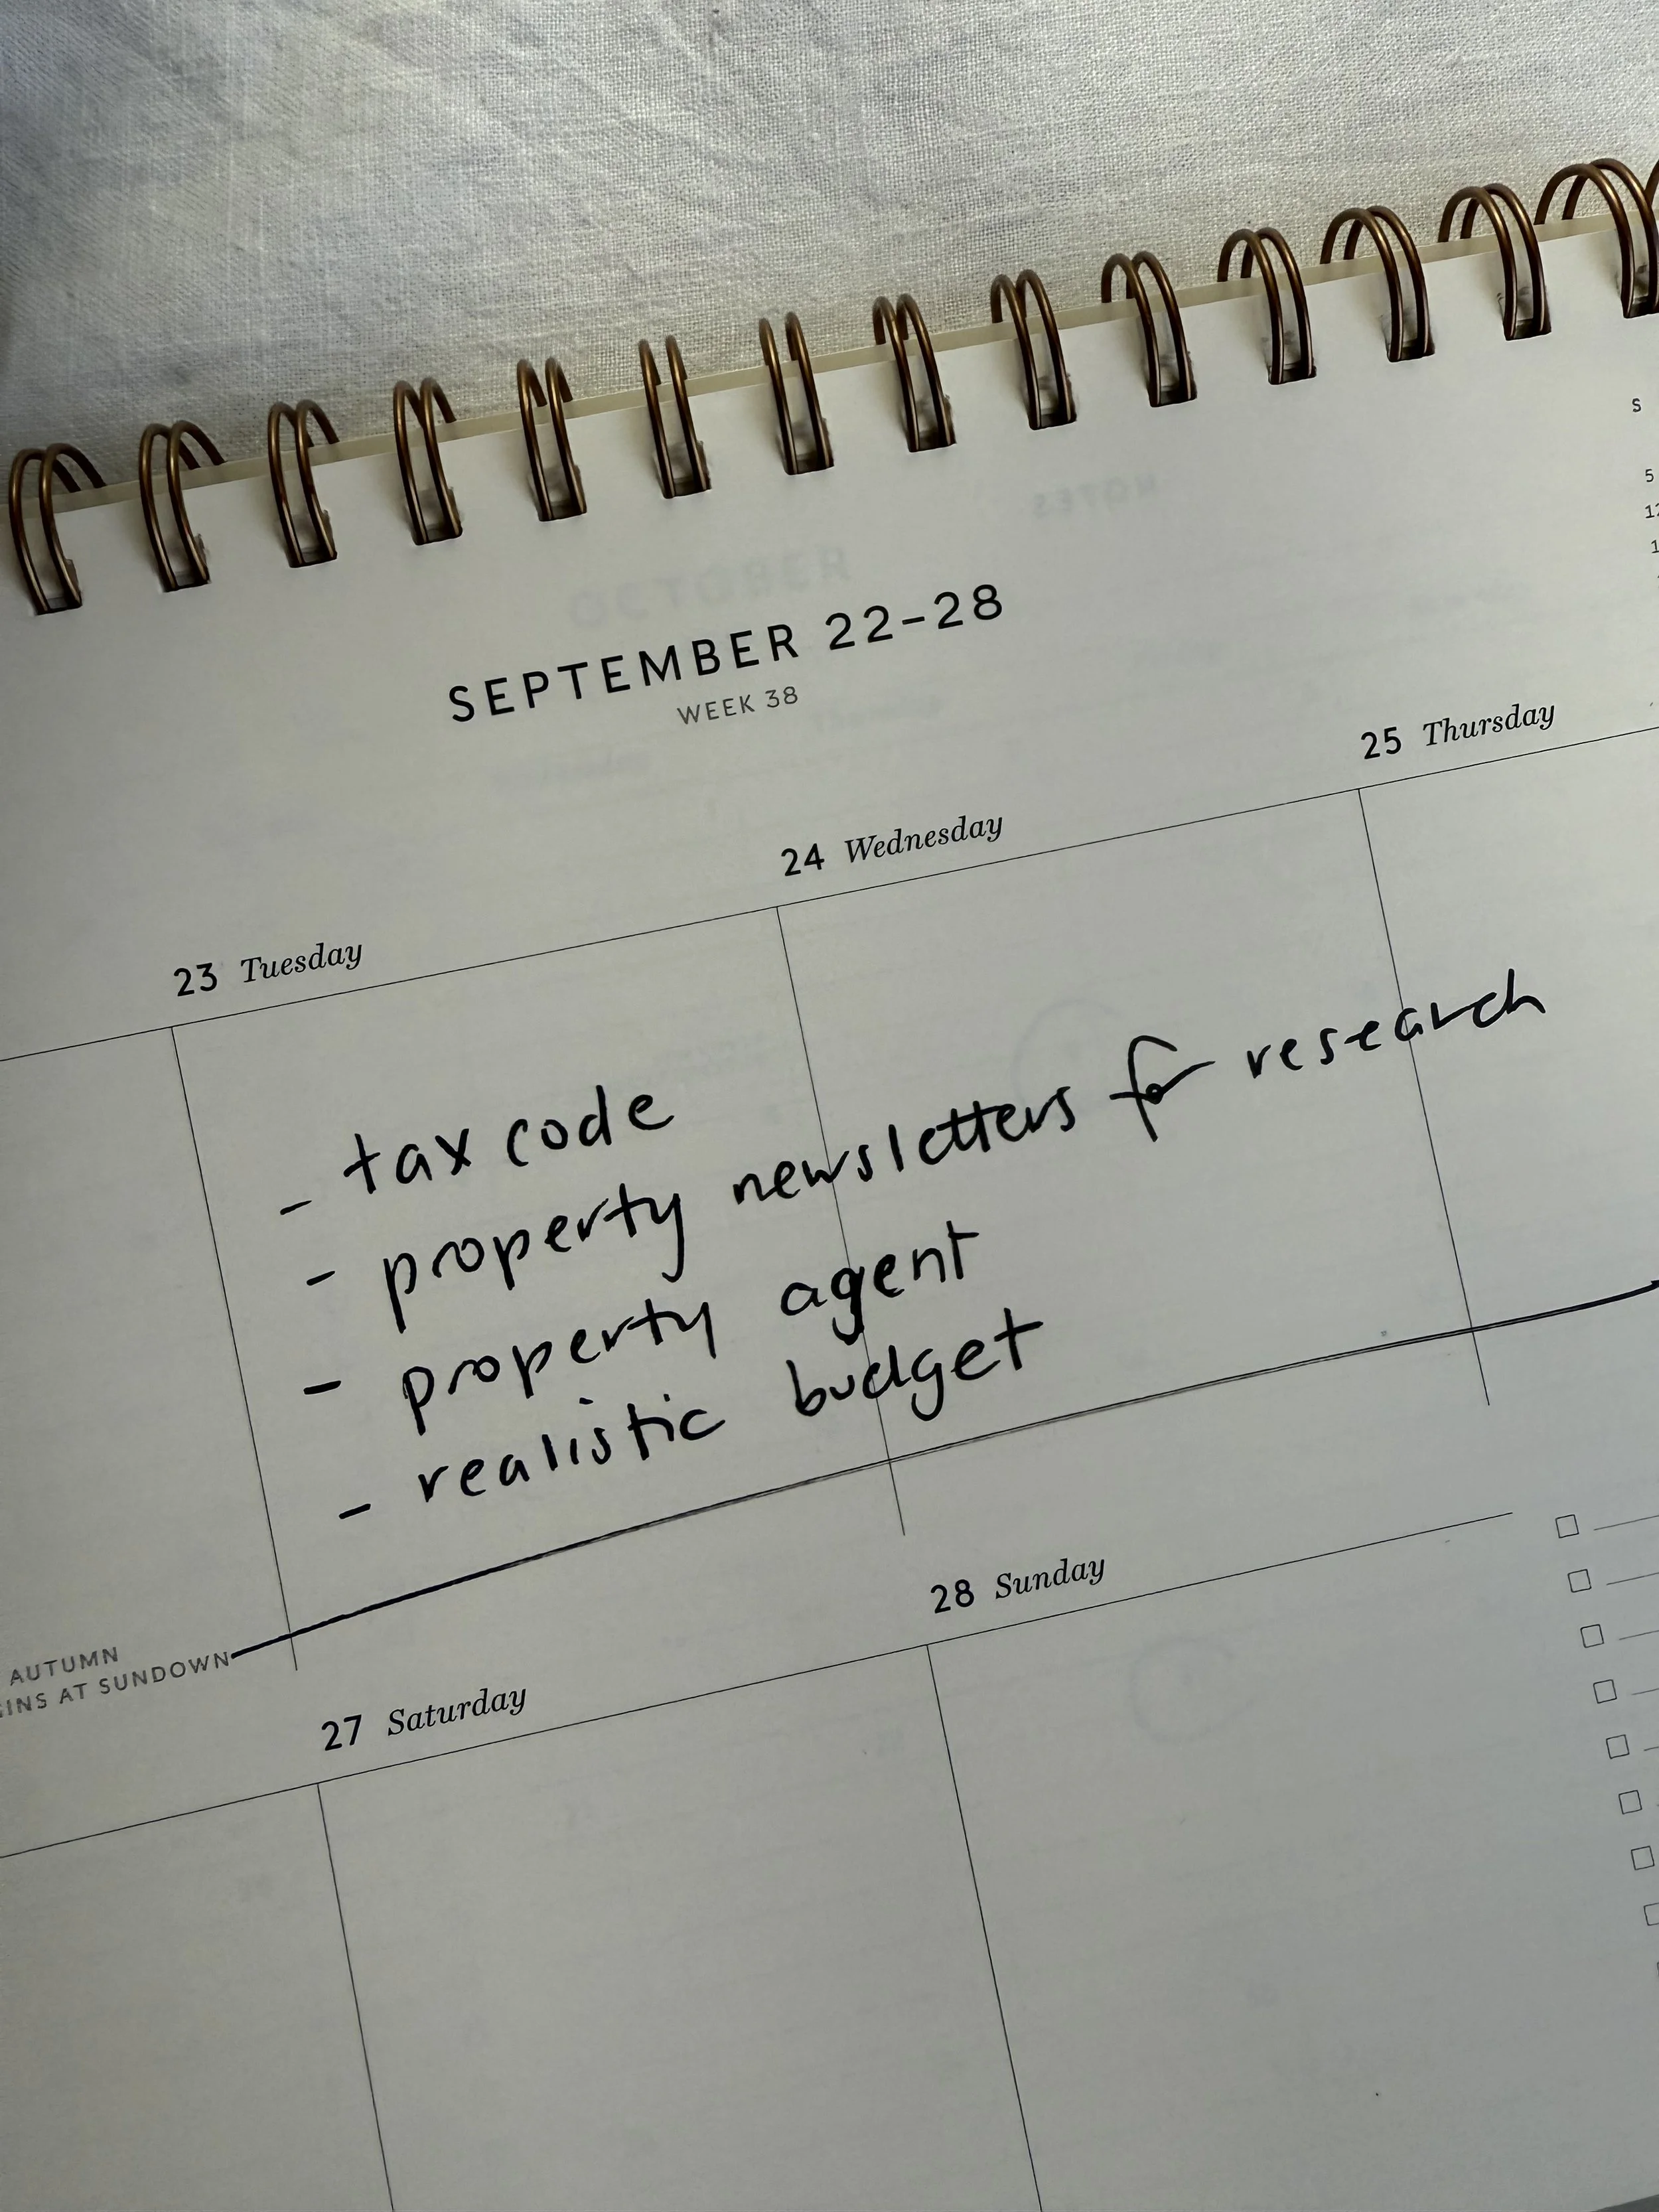 S
5
SEPTEMBER 22-28
WEEK 38
23 Tuesday
24 Wednesday
25 Thursday
- tax code
- property newsletters for research
- property agent
- realistic budget
AUTUMN
AT SUNDOWN
27 Saturday
28 Sunday